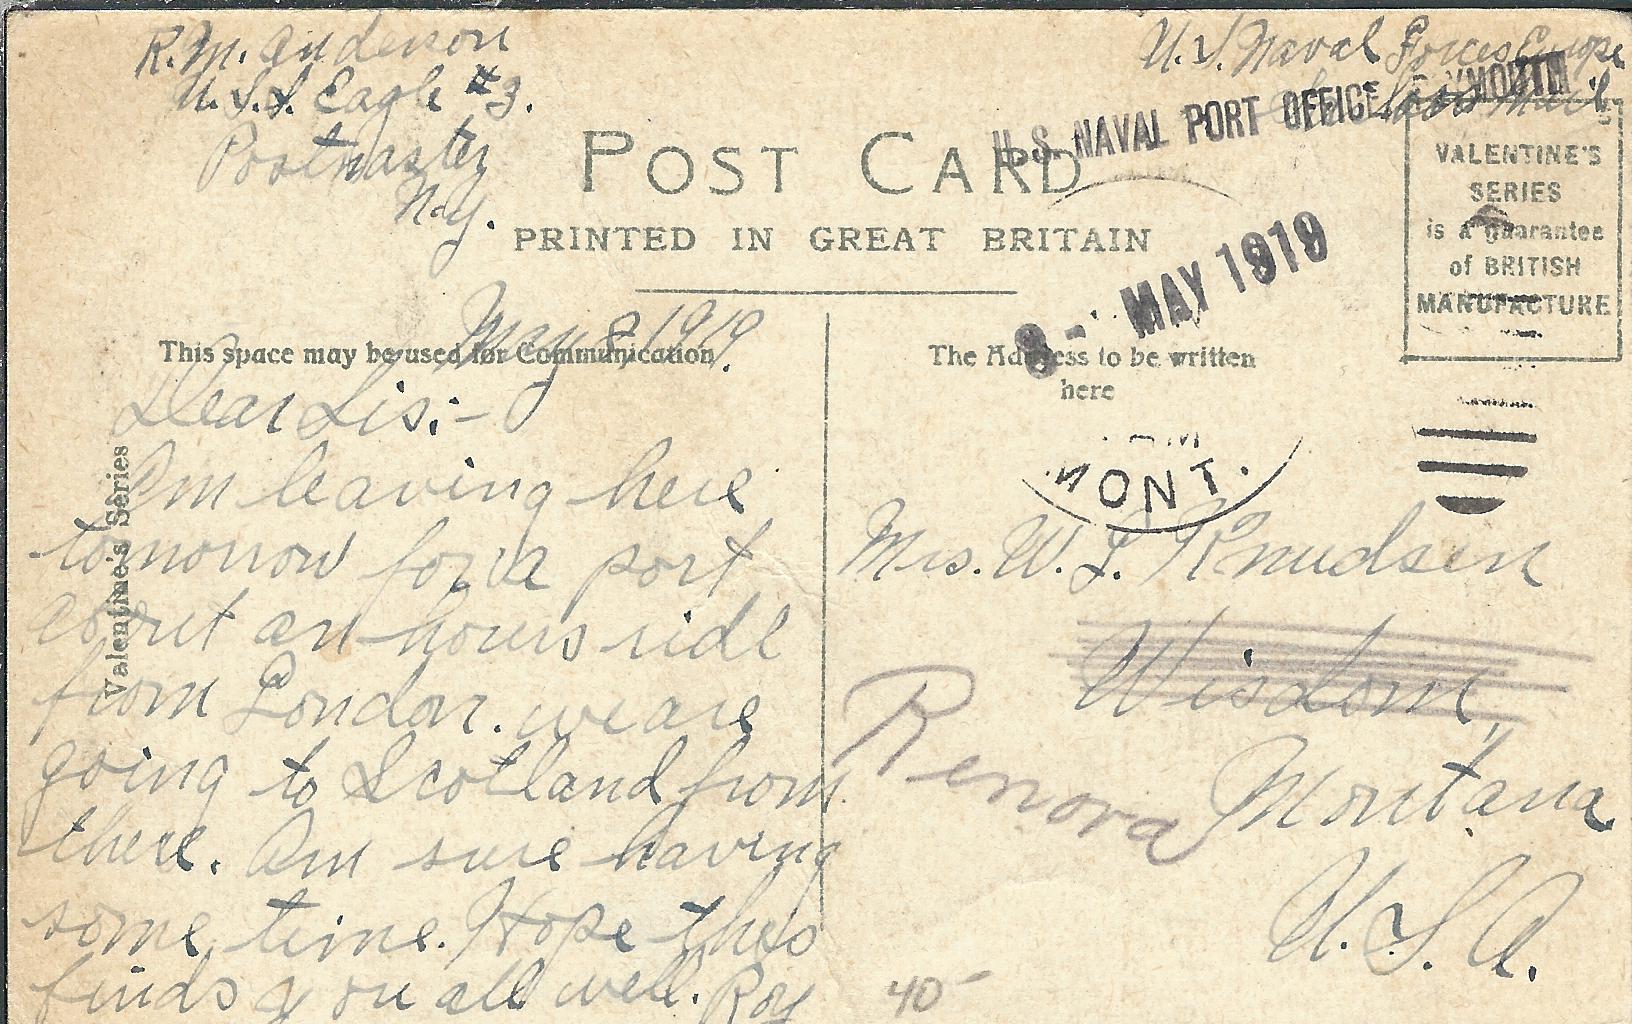 R.M. Anderson
U.S.S. Eagle #3.
Postmaster
N.Y.
U.S. Naval Forces Europe
U.S. NAVAL PORT OFFICE, PLYMOUTH
POST CARD
PRINTED IN GREAT BRITAIN
8 - MAY 1919
VALENTINE'S
SERIES
is a guarantee
of BRITISH
MANUFACTURE
This space may be used for Communication.
The Address to be written
here
Valentine's Series
May 8, 1919.
Dear Sis:-
Am leaving here
tomorrow for a port
about an hours ride
from London. we are
going to Scotland from
there. Am sure having
some time. Hope this
finds you all well. Roy
MONT.
Mrs. W. L. Knudsen
Wisdom,
Renova
Montana
U.S.A.
40-